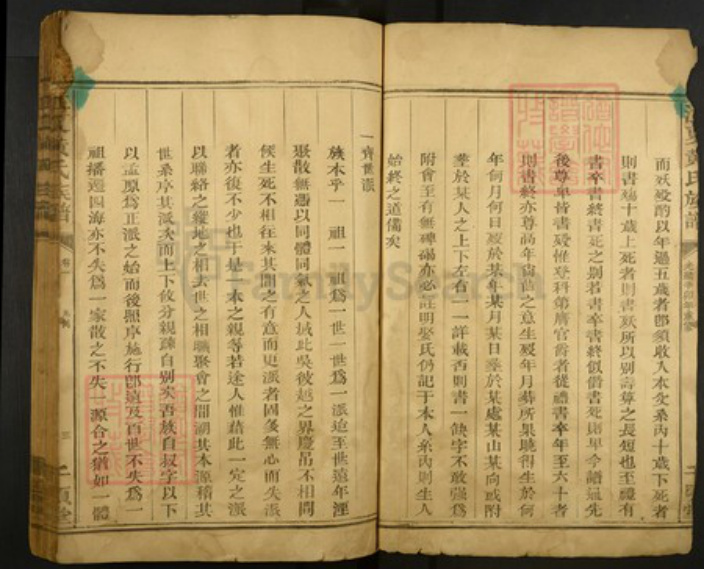 而妖殁酌以年過五歲者卽須收入本父系內十歲下死者
則書殤十歲上死者則書妖所以别壽算之長短也至禮有
書卒書終書死之别若書卒書終似僭書死則卑今譜遵先
後尊卑皆書殁惟登科第膺官爵者從禮書卒年至六十者
則書終亦尊高年尚齒之意生殁年月葬所果曉得生於何
年何月何日殁於某年某月某日塟於某處某山某向或附
塟於某人之上下左右一一詳載否則書一缺字不敢强爲
附會至有無碑碣亦必註明娶氏仍記于本人系內則生人
始終之道備矣
一齊世派
族本乎一祖一祖爲一世一世爲一派迨至世遠年湮
聚散無邇以同體同氣之人域此吳彼越之界慶吊不相問
候生死不相往來其間之有意而更派者固多無心而失派
者亦復不少也于是一本之親等若途人惟藉此一定之派
以聯絡之縱地之相去世之相曠聚會之間溯其本源稽其
世系序其派次而上下攸分親疎自别矣吾族自叔字以下
以孟原爲正派之始而後照序施行卽遠及百世不失爲一
祖播遷四海亦不失爲一家散之不失一源合之猶如一體
江夏黄氏族譜
卷一
三